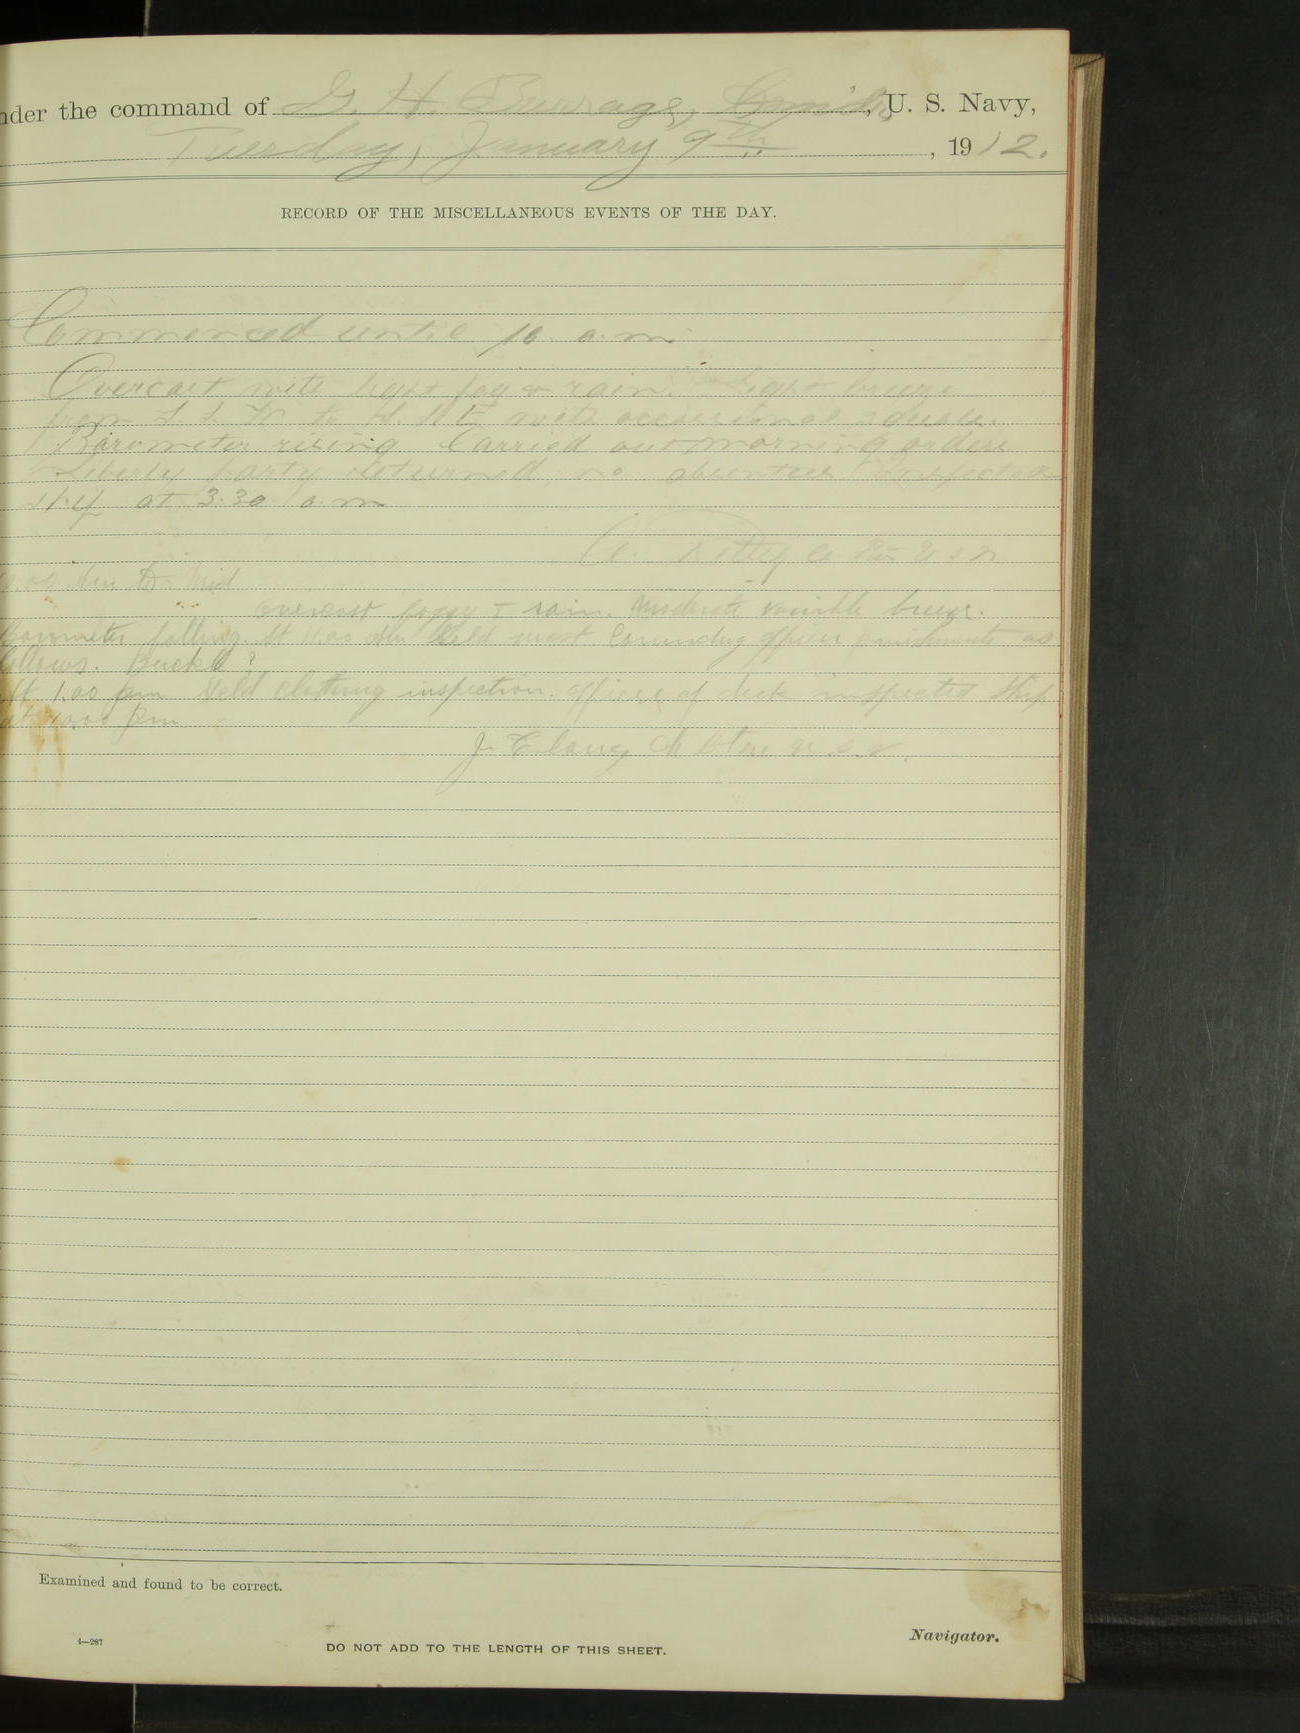 nder the command of G. H. Burrage, Comdr, U. S. Navy,
Tuesday, January 9th, 1912.
RECORD OF THE MISCELLANEOUS EVENTS OF THE DAY.
Commenced until 10 a.m.
Overcast with light fog & rain. Light breeze
from with occasional squalls.
Barometer rising. Carried out morning orders
Liberty party returned, no absentees. Inspected
at 3:30 a.m
U S N
to Mid
overcast foggy + rain. Moderate variable breeze.
Barometer falling. At 11.00 Am Held mast Comndg officer punishments as
follows. Buckle?
At 1.00 pm Held clothing inspection. officer of deck inspected ship
at pm
J. U.S.N.
Examined and found to be correct.
4—287
DO NOT ADD TO THE LENGTH OF THIS SHEET.
Navigator.